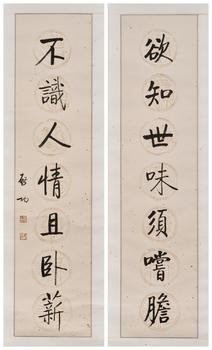 欲知世味須嚐膽
不識人情且卧薪
啓功